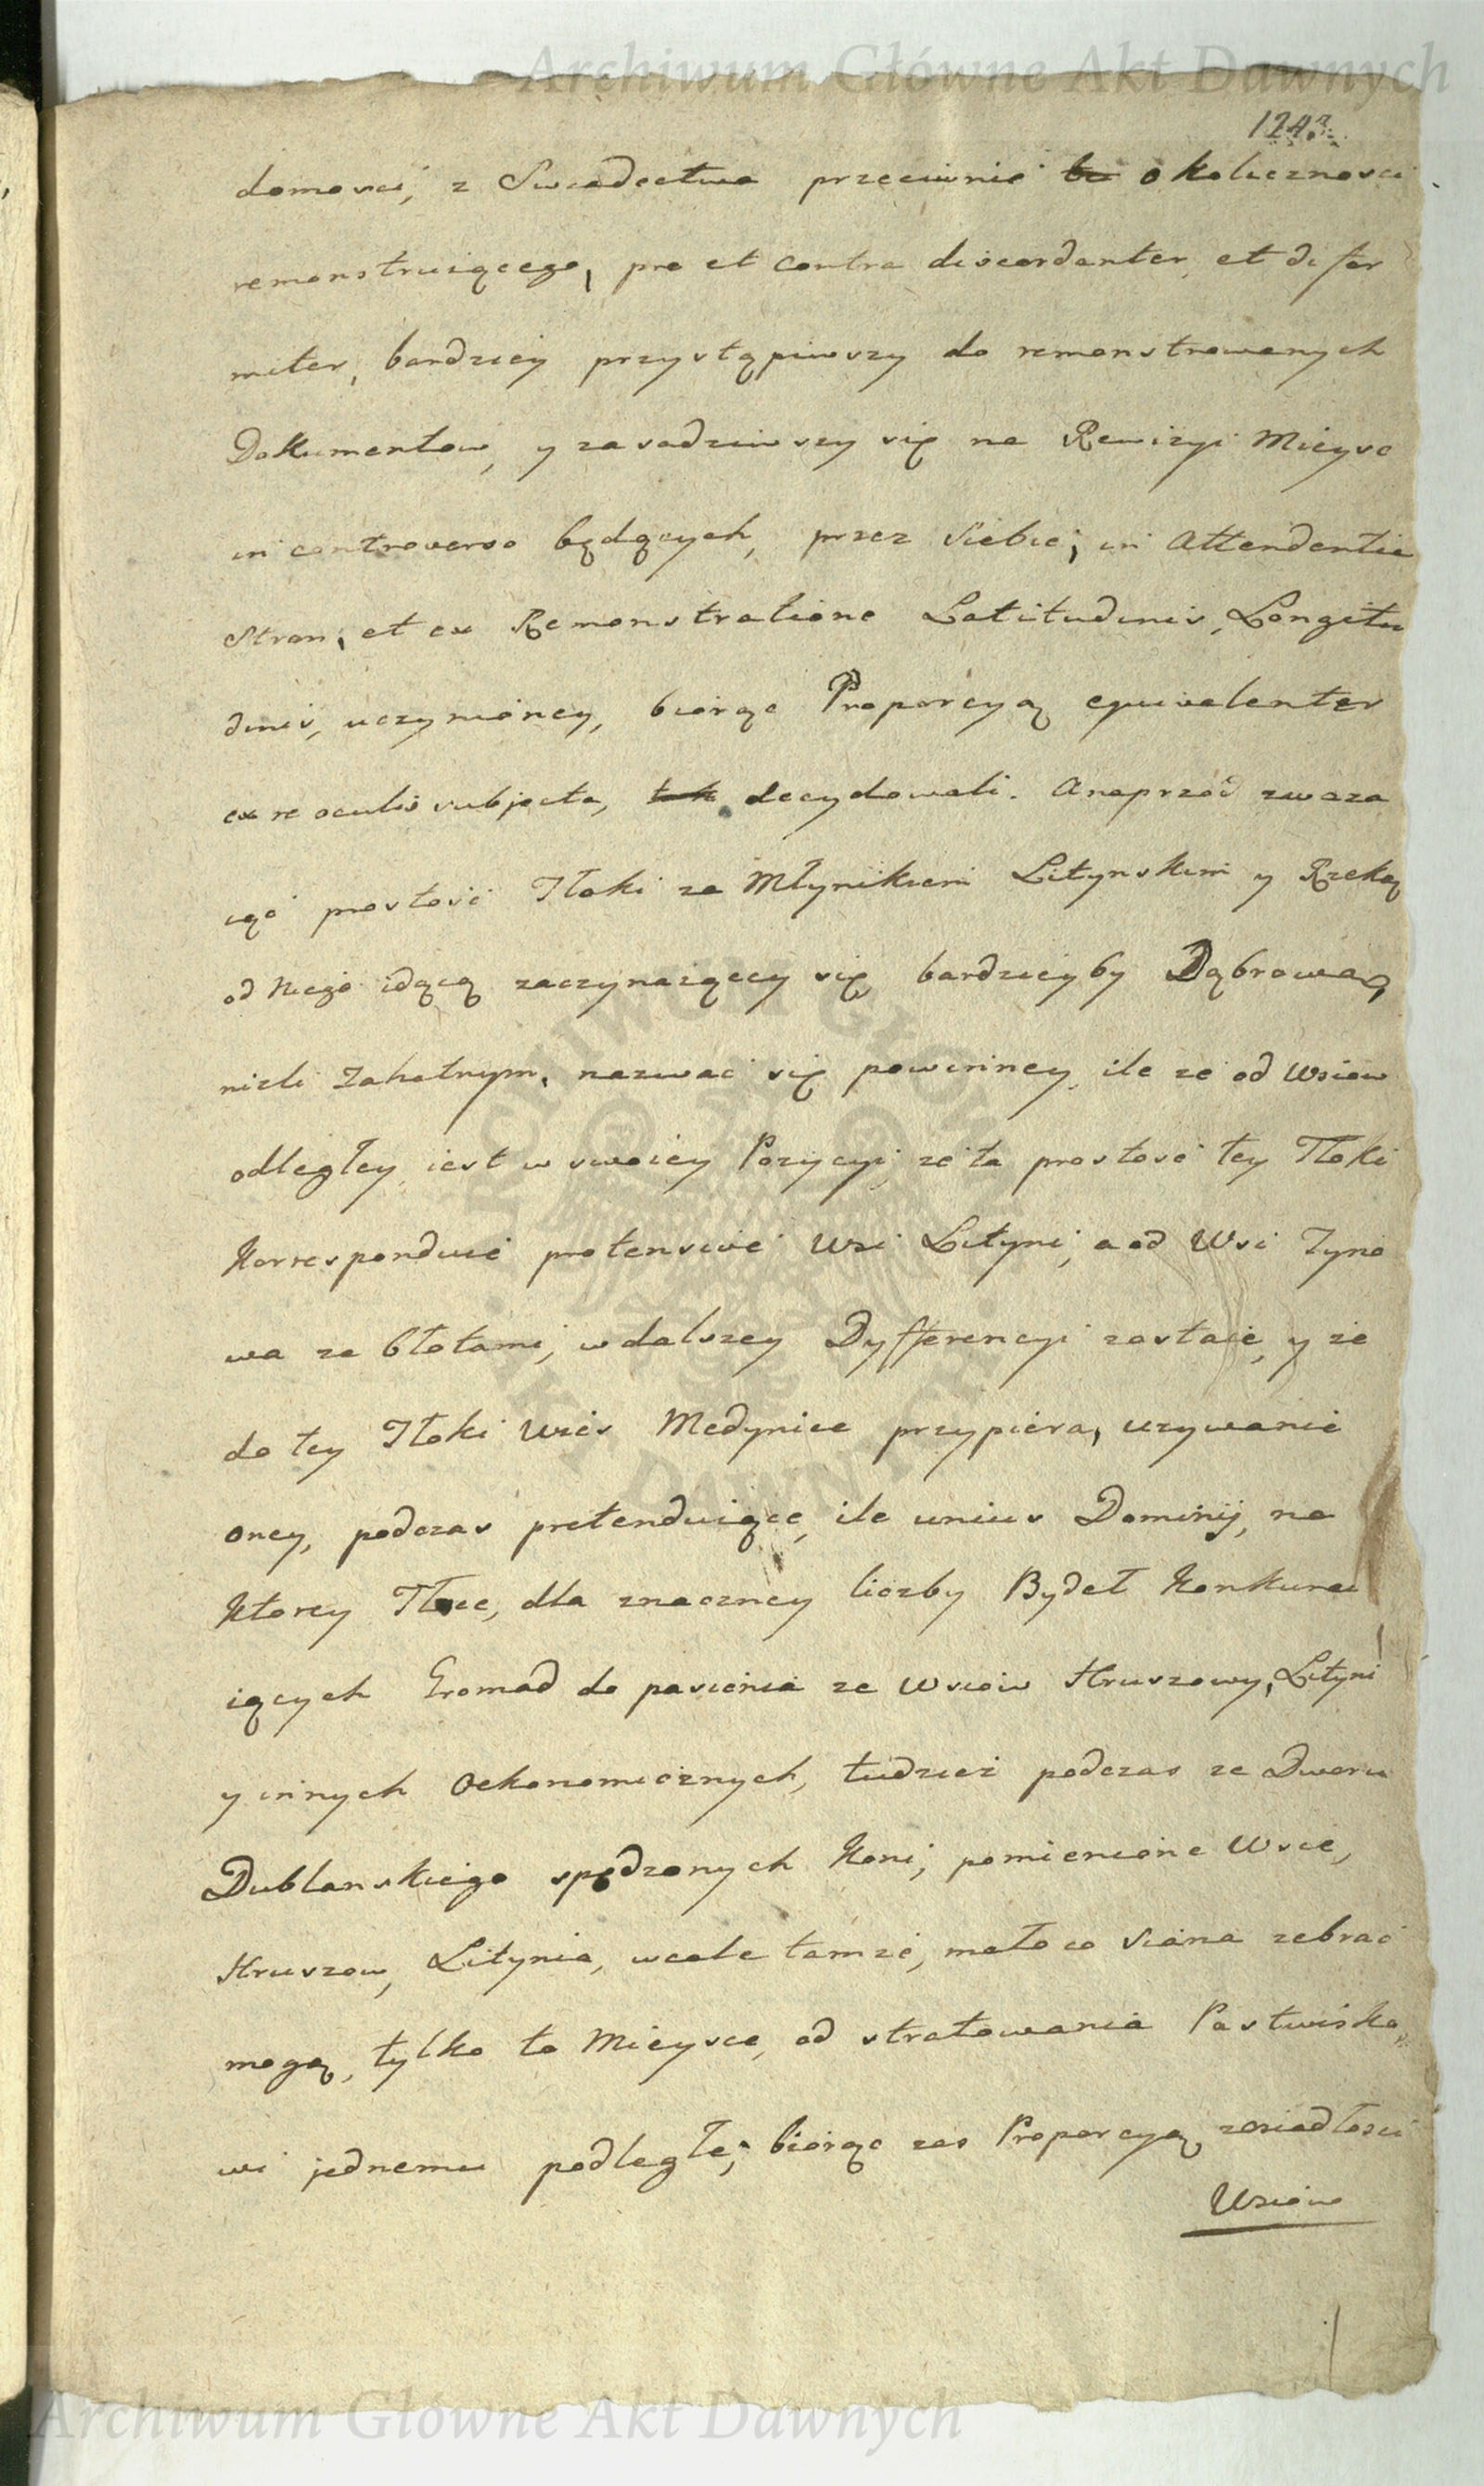 Archiwum Główne Akt Dawnych
124
domości, z Swiadectwa przeciwnie okoliczności
remonstruiącego, pro et contra discordanter et difor
miter, bardziey przystąpiwszy do remonstrowanych
Dokumentow, y zasadziwszy się na Rewizyi Mieysc
in controverso będących, przez siebie, in Attendentia
Stron, et ex Remonstratione Latitudinis, Longitu
dinis, uczynioney, biorąc Proporcyą equivalenter
ex re oculis subjecta, decydowali. A naprzod zważa
iąc prostość Tłoki za Młynikiem Litynskim y Rzeką
od niego idącą zaczynaiącey się bardzieyby Dąbrową,
nizli Zahatnym, nazwać się powinney, ile ze od Wsiow
odległey iest w swoiey Pozycyi, ze ta prostość tey Tłoki
Korresponduie protensive Wsi Lityni, a od Wsi Tyno
wa za błotami, w dalszey Dyfferencyi zostaie, y że
do tey Tłoki Wieś Medynice przypiera, uzywanie
oney, podczas pretenduiące, ile unius Dominij, na
Ktorey Tłoce, dla znaczney liczby Bydeł Konkuru
iących Gromad do pasienia ze Wsiow Hruszowy, Lityni
y innych Oekonomicznych, tudzież podczas ze Dworu
Dublanskiego spędzonych Koni, pomienione Wsie,
Hruszow, Litynia, wcale tamże, mało co siana zebrać
mogą, tylko to Mieysce, od stratowania Pastwisko
wi jednemu podległe; biorąc zas Proporcyą zosiadłości
Wsiow
Archiwum Główne Akt Dawnych